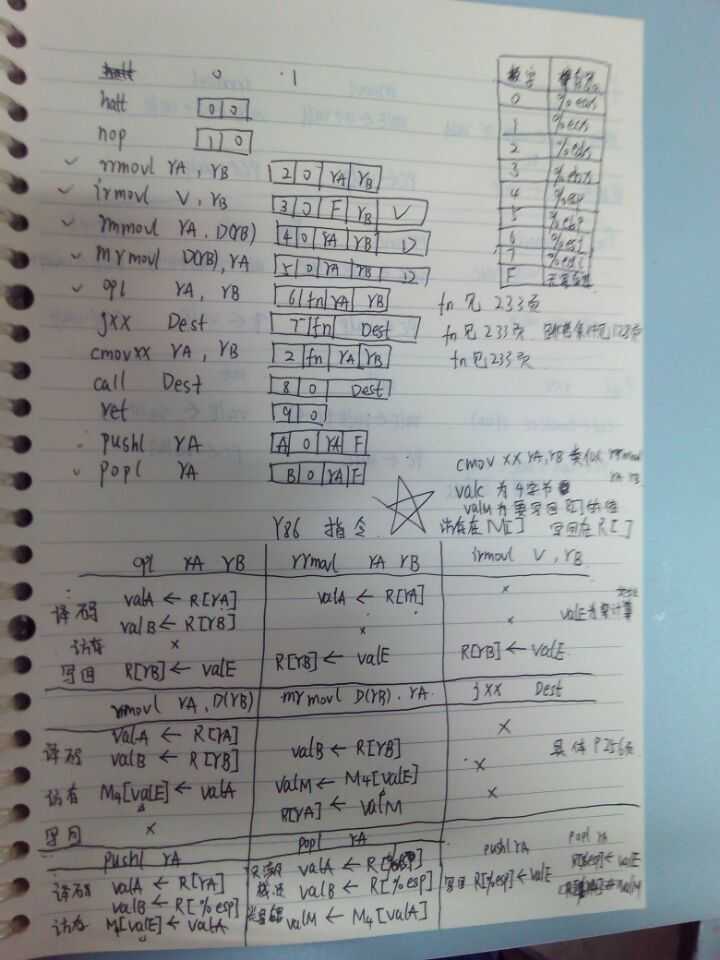 halt 0 1
halt 0 0
nop 1 0
rrmovl rA, rB 2 0 rA rB
irmovl V, rB 3 0 F rB V
rmmovl rA, D(rB) 4 0 rA rB D
mrmovl D(rB), rA 5 0 rA rB D
opl rA, rB 6 fn rA rB fn 见 233页
jxx Dest 7 fn Dest fn 见 233页
cmovxx rA, rB 2 fn rA rB fn 见 233页
call Dest 8 0 Dest
ret 9 0
pushl rA A 0 rA F
popl rA B 0 rA F
数字
0 %eax
1 %ecx
2 %edx
3 %ebx
4 %esp
5 %ebp
6 %esi
7 %edi
F
cmov xx rA, rB 类似 rrmovl
rA rB
valc 为 4字节
valM 为要写回 R[] 的值
Y86 指令 访存在 M[] 写回在 R[]
opl rA rB rrmovl rA rB irmovl V, rB
译码 valA ← R[rA] valA ← R[rA] x
valB ← R[rB] x x valE为
访存 x
写回 R[rB] ← valE R[rB] ← valE R[rB] ← valE
rmmovl rA, D(rB) mrmovl D(rB), rA jxx Dest
译码 valA ← R[rA] x
valB ← R[rB] valB ← R[rB] x 具体 P256页
访存 M4[valE] ← valA valM ← M4[valE] x
写回 x R[rA] ← valM
pushl rA popl rA pushl rA popl rA
译码 valA ← R[rA] valA ← R[%esp] R[%esp] ← valE
valB ← R[%esp] valB ← R[%esp] 写回 R[%esp] ← valE
访存 M4[valE] ← valA valM ← M4[valA]